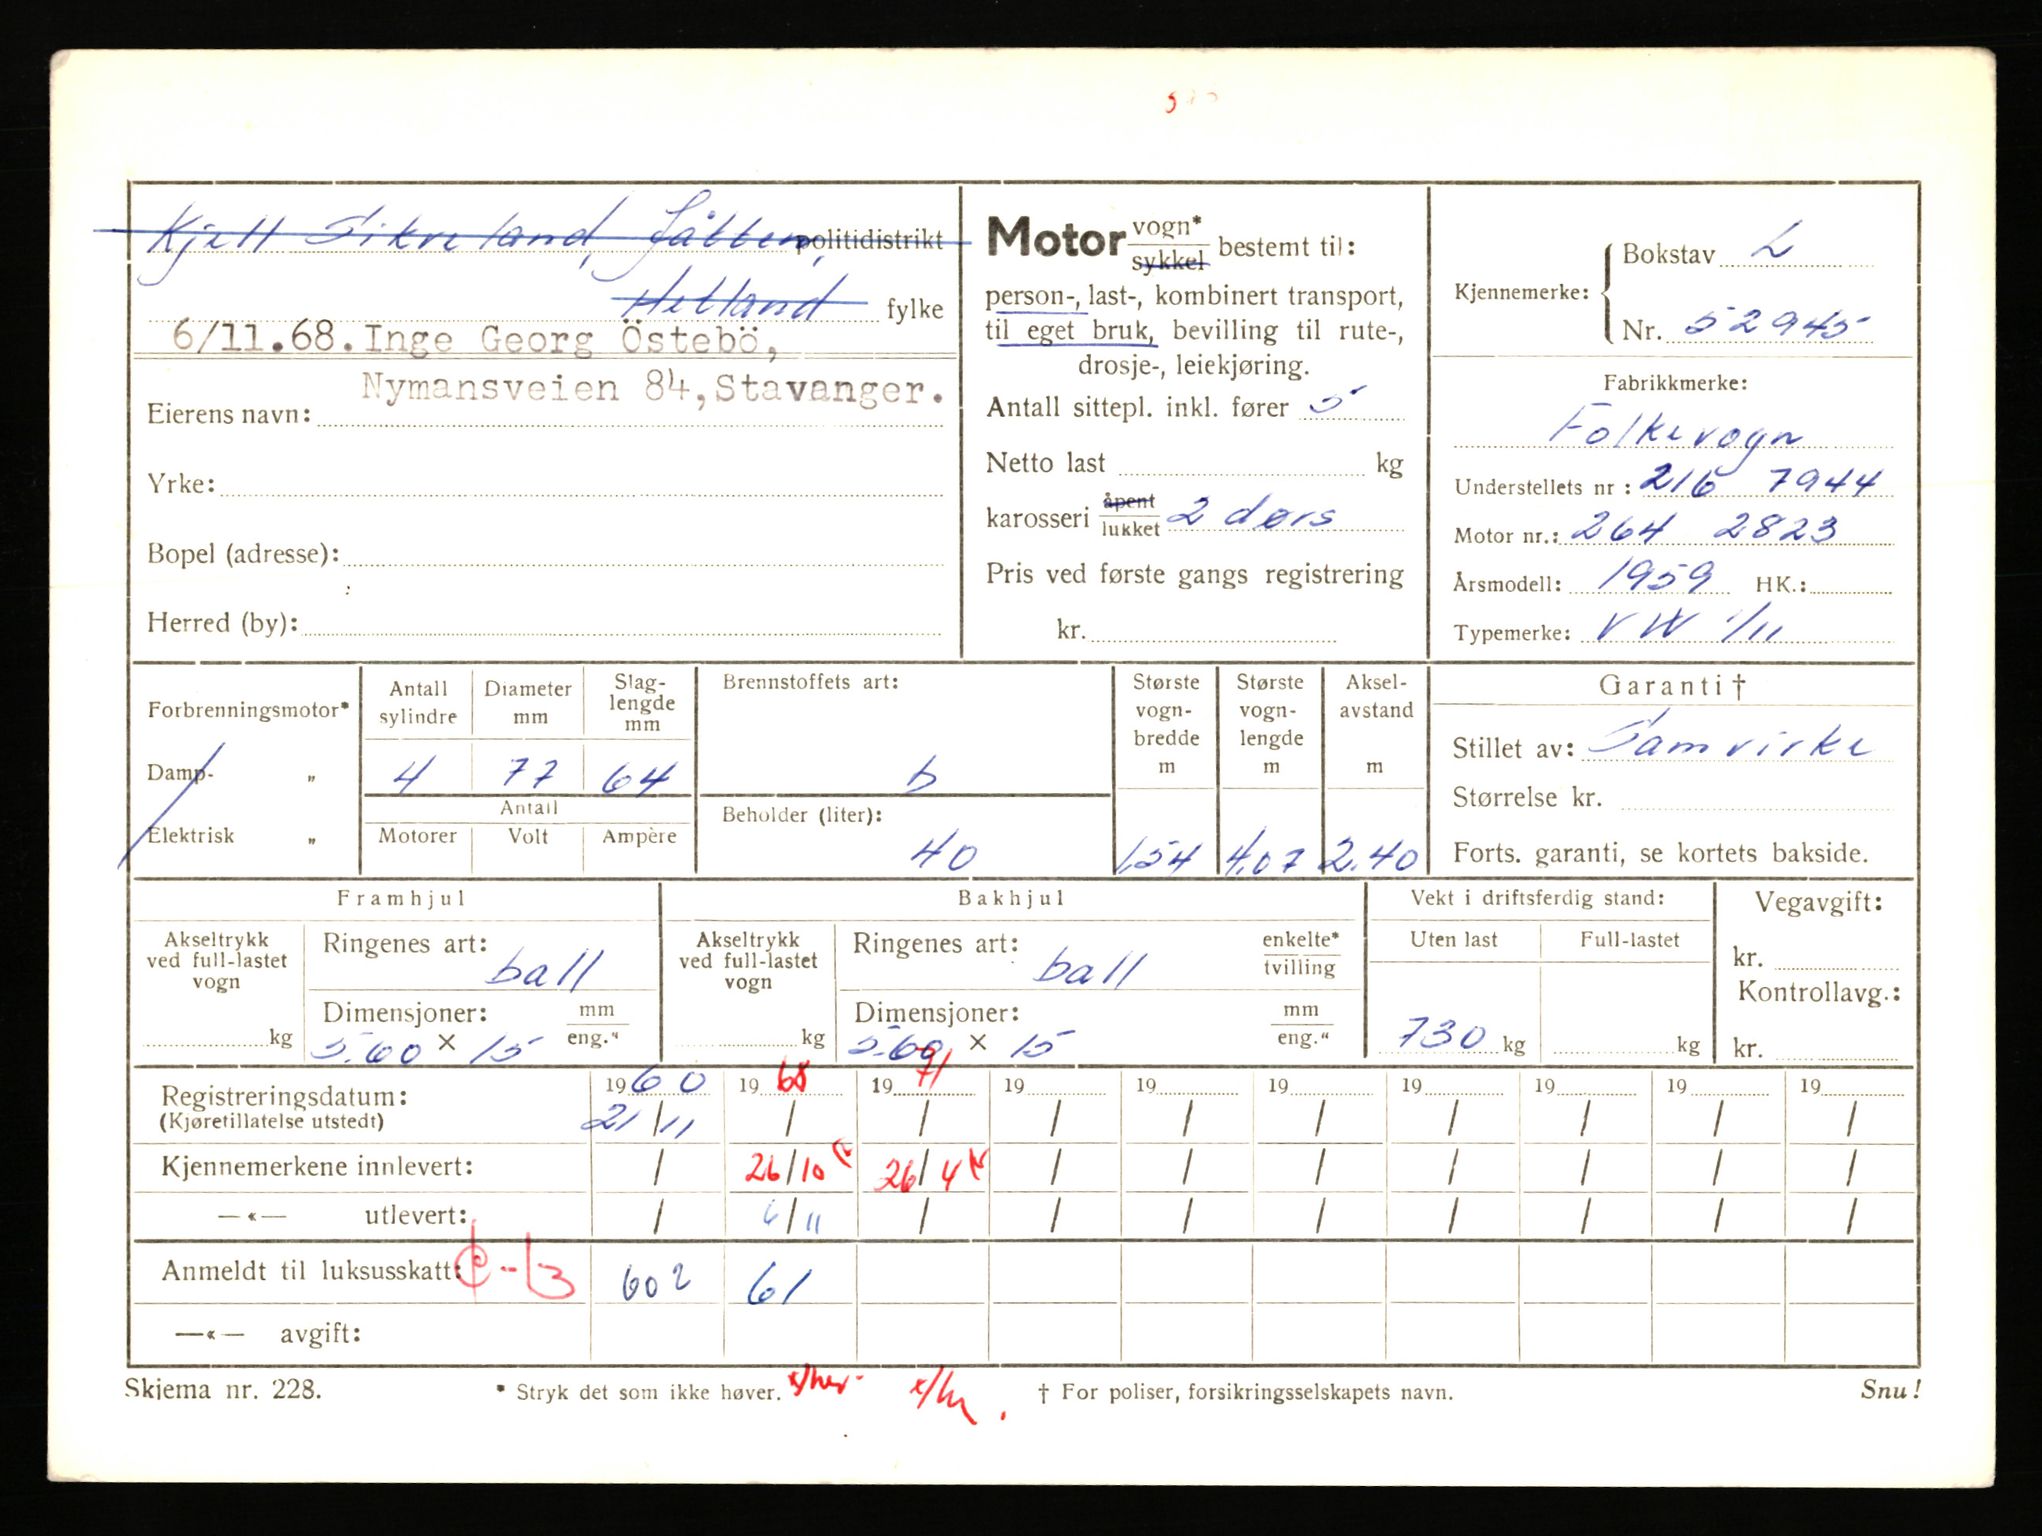 Kjell Sikveland, Jåtten, politidistrikt
Hetland fylke
6/11.68. Inge Georg Östebö,
Nymansveien 84, Stavanger.
Eierens navn:
Yrke:
Bopel (adresse):
Herred (by):
Motor vogn* sykkel bestemt til:
person-, last-, kombinert transport,
til eget bruk, bevilling til rute-,
drosje-, leiekjøring.
Antall sittepl. inkl. fører 5
Netto last kg
karosseri åpent lukket 2 dørs
Pris ved første gangs registrering
kr.
Kjennemerke: Bokstav L
Nr. 52945
Fabrikkmerke:
Folkevogn
Understellets nr : 216 7944
Motor nr.: 264 2823
Årsmodell: 1959 HK.:
Typemerke: VW 1/11
Forbrenningsmotor*
Damp- „
Elektrisk „
Antall sylindre
Diameter mm
Slag-lengde mm
4 77 64
Antall
Motorer Volt Ampère
Brennstoffets art:
b
Beholder (liter):
40
Største vogn-bredde m
1,54
Største vogn-lengde m
4.07
Aksel-avstand m
2.40
Garanti †
Stillet av: Samvirke
Størrelse kr.
Forts. garanti, se kortets bakside.
Framhjul
Akseltrykk ved full-lastet vogn
kg
Ringenes art: ball
Dimensjoner: mm eng."
5.60 × 15
Bakhjul
Akseltrykk ved full-lastet vogn
kg
Ringenes art: ball enkelte* tvilling
Dimensjoner: mm eng."
5.60 × 15
Vekt i driftsferdig stand:
Uten last Full-lastet
730 kg kg
Vegavgift:
kr.
Kontrollavg.:
kr.
Registreringsdatum: 1960 1968 1971 19 19 19 19 19 19 19
(Kjøretillatelse utstedt) 21/11 / / / / / / / / /
Kjennemerkene innlevert: / 26/10 26/4 / / / / / / /
—«— utlevert: / 6/11 / / / / / / / /
Anmeldt til luksusskatt: 602 61
—«— avgift:
Skjema nr. 228.
* Stryk det som ikke høver.
† For poliser, forsikringsselskapets navn.
Snu!